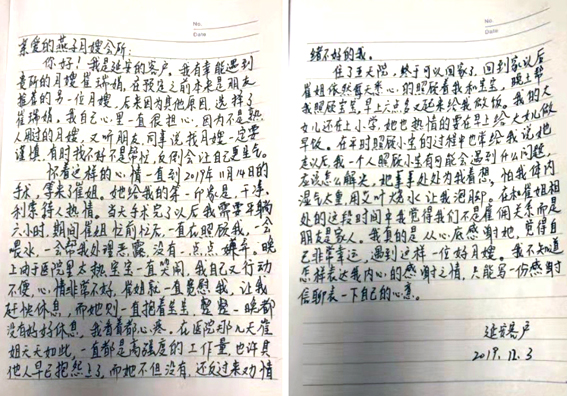 No.
Date
亲爱的燕子月嫂会所：
你好！我是延安的客户。我有幸能遇到
贵所的月嫂崔瑞娟，在预定之前本来是朋友
推荐的另一位月嫂，后来因为其他原因，选择了
崔瑞娟。我自己心里一直很担心，因为不是熟
人用过的月嫂，又听朋友、同事说找月嫂一定要
谨慎，有时找不好不是帮忙，反倒会让自己更生气。
怀着这样的心情一直到2019年11月14日的
手术，等来了崔姐。她给我的第一印象是，干净、
利索待人热情。当天手术完了以后我需要平躺
六小时，期间崔姐忙前忙后，一直在照顾我，一会
喂水，一会帮我处理恶露，没有一点点嫌弃。晚
上由于医院里太热宝宝一直哭闹，我自己又行动
不便，心情非常不好，崔姐就一直安慰我，让我
赶快休息，而她则一直抱着宝宝，整整一晚都
没有好好休息，我看着都心疼。在医院那几天崔
姐天天如此，一直都是高强度的工作量，也许其
他人早已抱怨了，而她不但没有，还反过来劝情
No.
Date
绪不好的我。
住了五天院，终于可以回家了，回到家以后
崔姐依然每天悉心的照顾着我和宝宝，晚上帮
我照顾宝宝，早上六点多又起来给我做饭。我的大
女儿还在上小学，她也热情的要在早上给大女儿做
早饭。在平时照顾小宝的过程中也常给我说她
走以后我一个人照顾小宝有可能会遇到什么问题，
应该怎么解决，把事事处处为我着想，怕我体内
湿气太重，用艾叶烧水让我泡脚。在和崔姐相
处的这段时间中我觉得我们不是雇佣关系而是
朋友是家人。我真的是从心底感谢她，觉得自
己非常幸运，遇到这样一位好月嫂。我不知道
怎样表达我内心的感谢之情，只能写一份感谢
信聊表一下自己的心意。
延安客户
2019.12.3